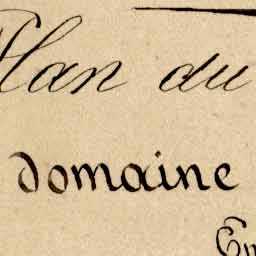 Plan du
domaine